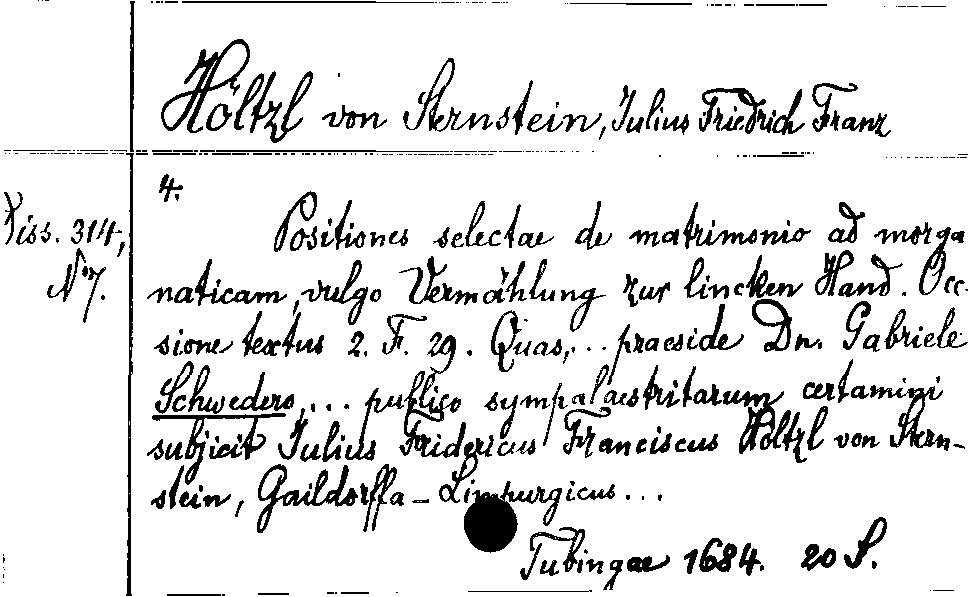 Höltzl von Sternstein, Julius Friedrich Franz
4.
Diss. 314,
N 7.
Positiones selectae de matrimonio ad morga
naticam, vulgo Vermählung zur lincken Hand. Occ-
sione textus 2. F. 29. Quas,... praeside Dn. Gabriele
Schwedero,... publico sympalaestritarum certamini
subjicit Julius Fridericus Franciscus Höltzl von Stern-
stein, Gaildorffa-Limpurgicus...
Tubingae 1684. 20 S.